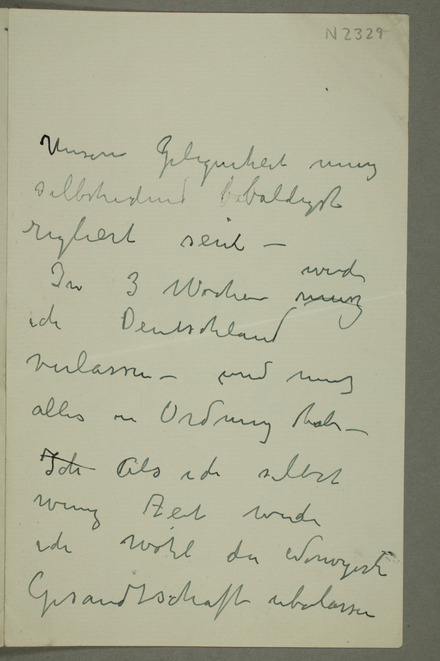 N2329
Unsere Gelegenheit muss
selbstredend baldigst
regliert sein —
In 3 Wochen werde
ich Deutschland
verlassen — und muss
alles in Ordnung hab —
Als ich selbst
wenig Zeit werde
ich wohl der Norwegisch
Gesandtschaft überlassen